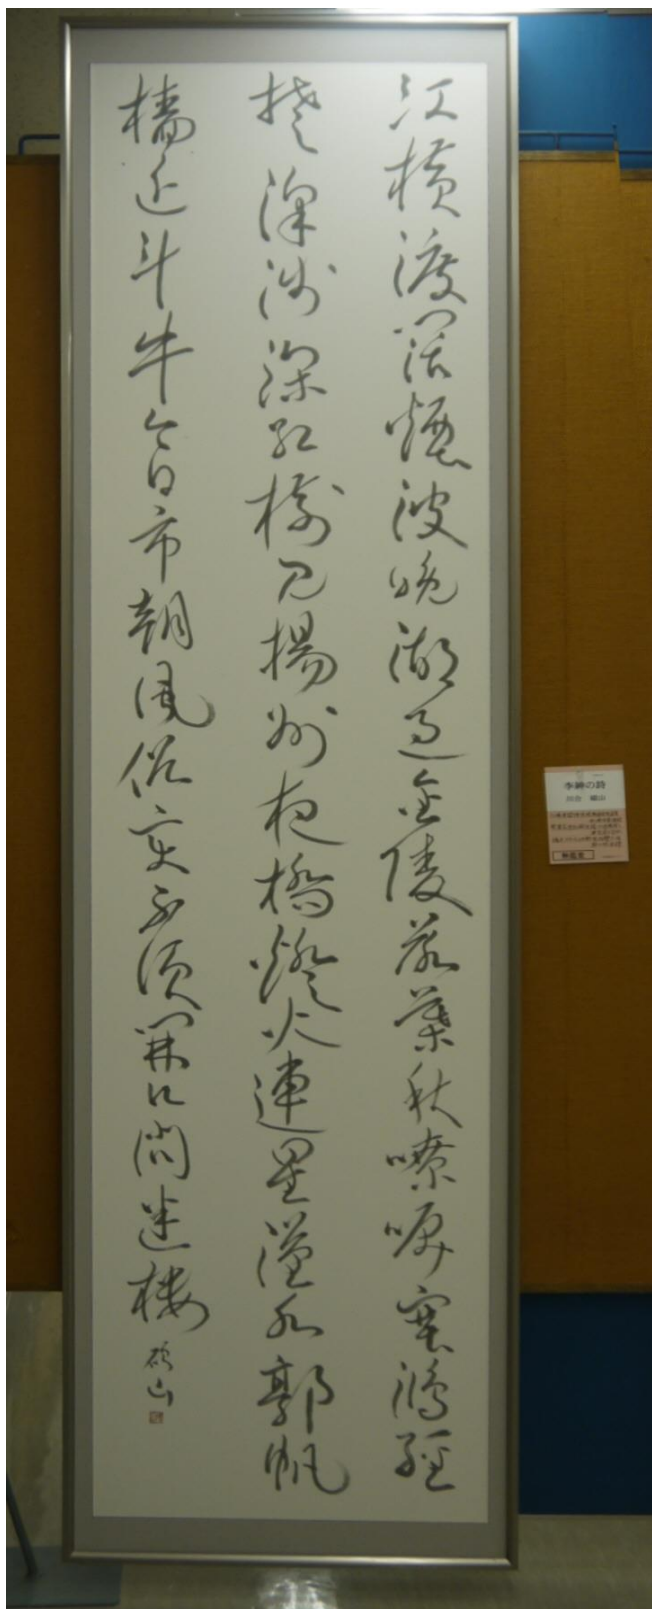 江橫渡闊煙波晚潮過金陵落葉秋嘹唳塞鴻經
楚澤淺深紅樹見揚州夜橋燈火連星漢水郭帆
檣近斗牛今日市朝風俗變不須開口問迷樓
李紳の詩
無鑑査